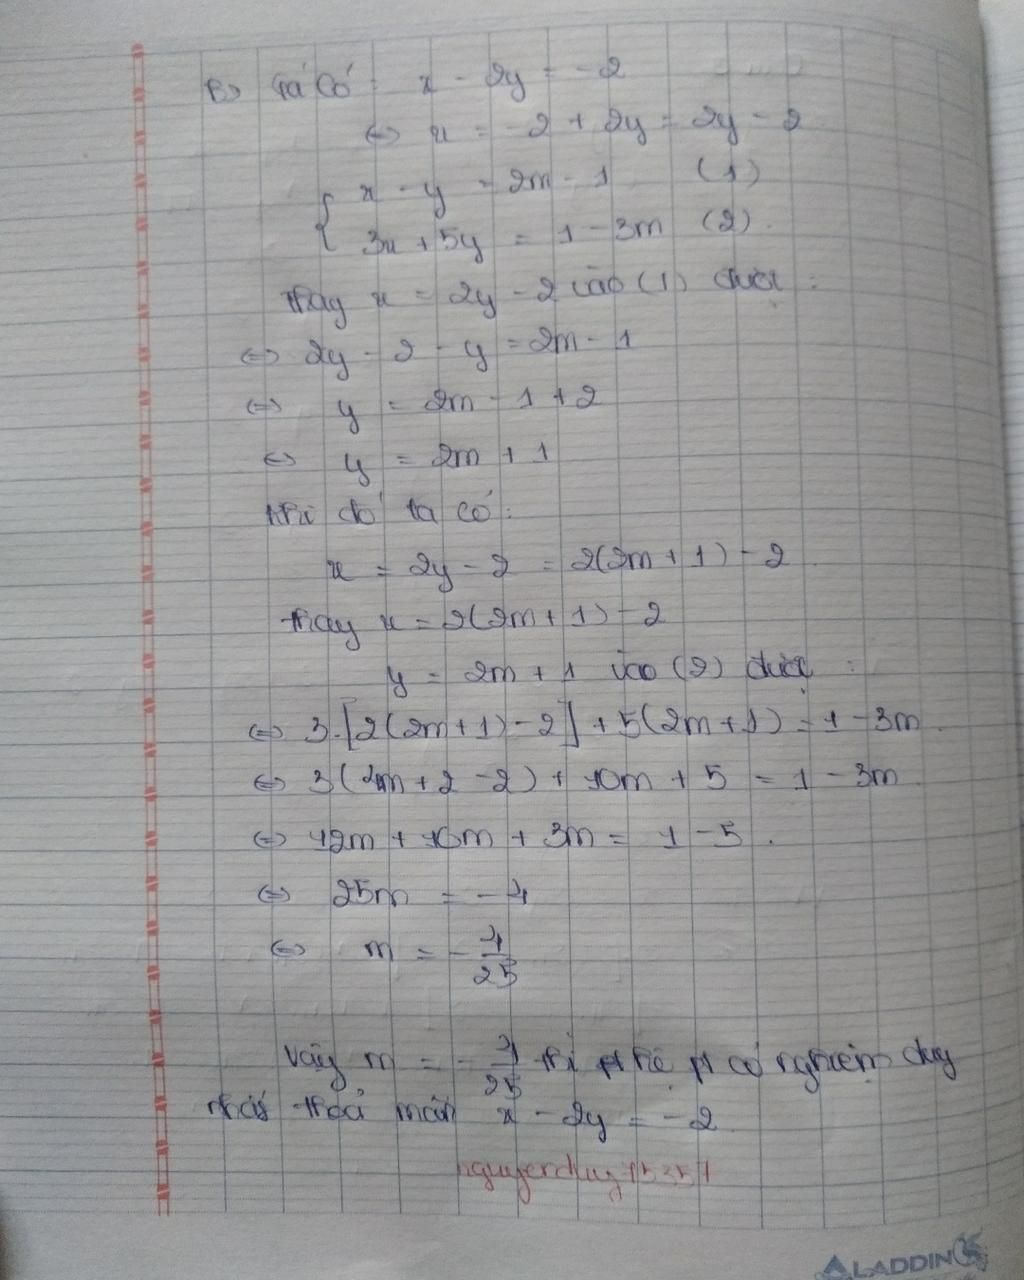 B) Ta có : x - 2y = -2
<=> x = -2 + 2y = 2y - 2
{ x - y = 2m - 1 (1)
3x + 5y = 1 - 3m (2).
thay x = 2y - 2 vào (1) được :
<=> 2y - 2 - y = 2m - 1
<=> y = 2m - 1 + 2
<=> y = 2m + 1
khi đó ta có :
x = 2y - 2 = 2(2m + 1) - 2
thay x = 2(2m + 1) - 2
y = 2m + 1 vào (2) được :
<=> 3.[2(2m+1)-2] + 5(2m+1) = 1 - 3m.
<=> 3(4m + 2 - 2) + 10m + 5 = 1 - 3m.
<=> 12m + 10m + 3m = 1 - 5.
<=> 25m = -4
<=> m = -4/25
Vậy m = -4/25 thì hệ pt có nghiệm duy
nhất thoả mãn x - 2y = -2
nguyenduy15351
ALADDIN